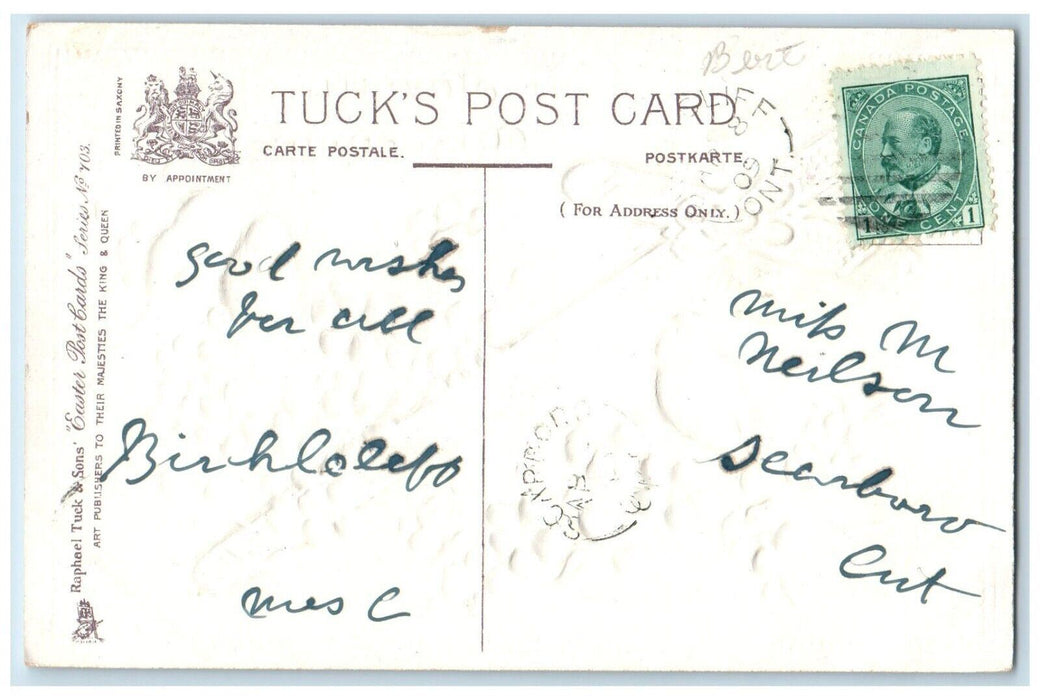 Bert
TUCK'S POST CARD
CARTE POSTALE.
POSTKARTE
(FOR ADDRESS ONLY.)
PRINTED IN SAXONY
BY APPOINTMENT
Raphael Tuck & Sons' "Easter Post Cards" Series No 703.
ART PUBLISHERS TO THEIR MAJESTIES THE KING & QUEEN
CANADA POSTAGE
ONE CENT
1 1
09
ONT.
Good wishes
for all
Birchcliff
Mrs C
Miss M
Neilson
Scarboro
Ont